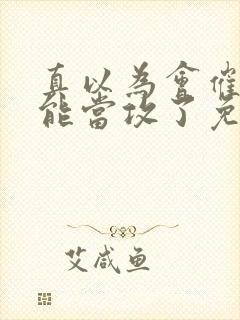 真以為會催
能當攻了免
艾咸鱼